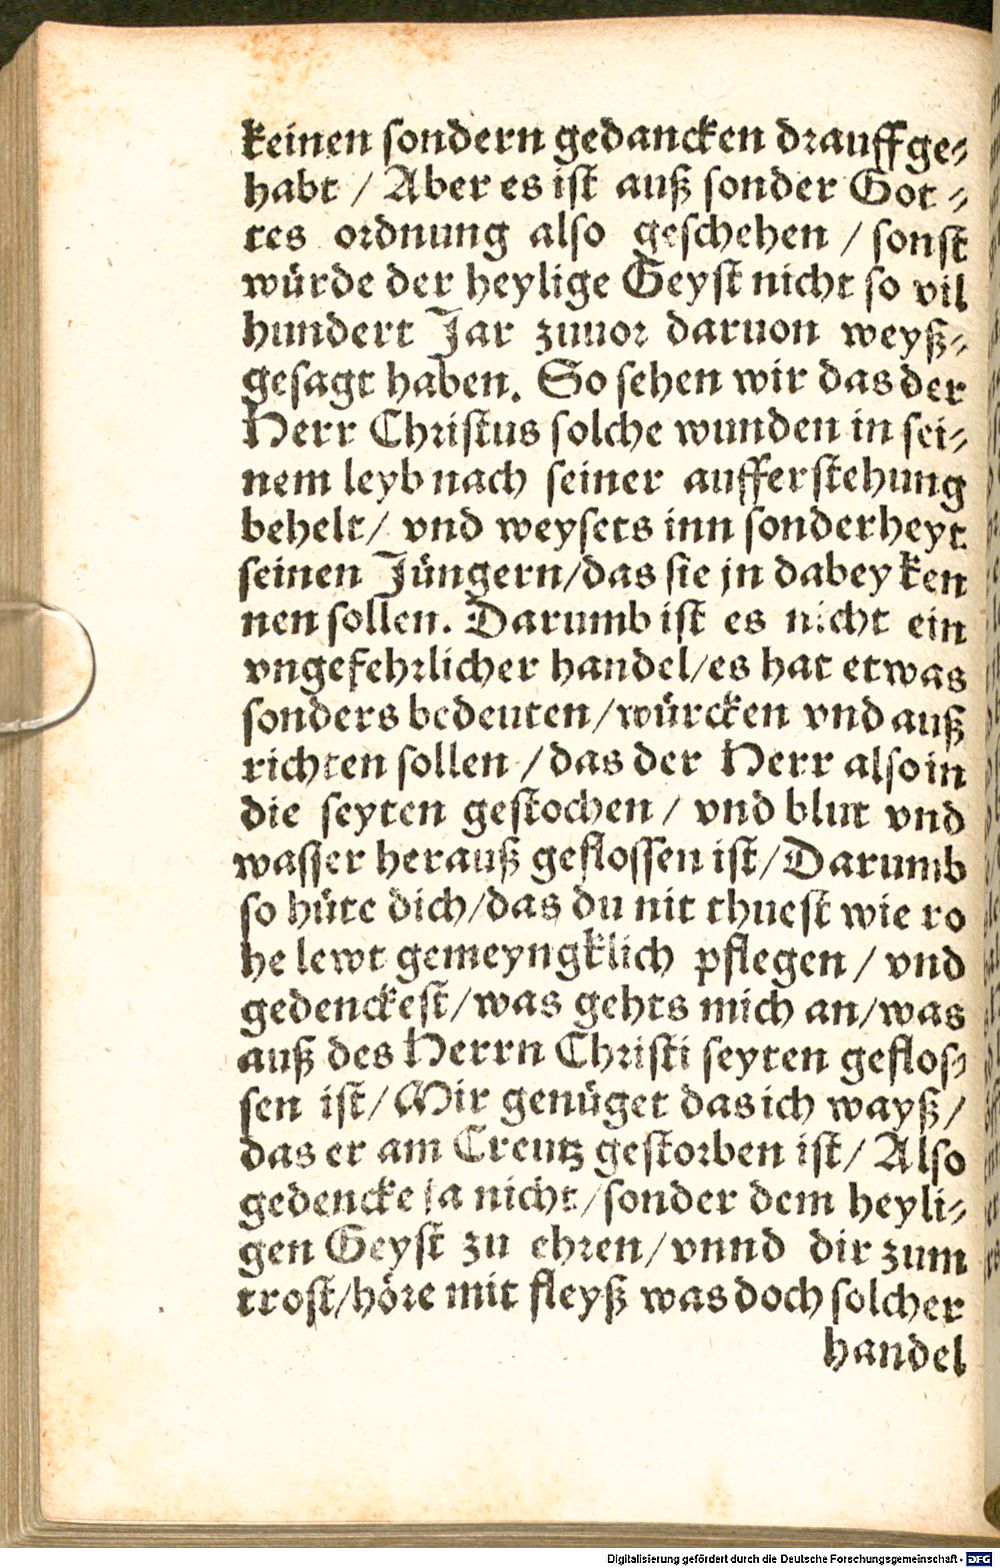 keinen sondern gedancken drauff ge-
habt / Aber es ist auß sonder Got-
tes ordnung also geschehen / sonst
würde der heylige Geyst nicht so vil
hundert Jar zuuor daruon weyß-
gesagt haben. So sehen wir das der
Herr Christus solche wunden in sei-
nem leyb nach seiner aufferstehung
behelt / vnd weysets inn sonderheyt
seinen Jüngern / das sie jn dabey ken
nen sollen. Darumb ist es nicht ein
vngefehrlicher handel / es hat etwas
sonders bedeuten / würcken vnd auß
richten sollen / das der Herr also in
die seyten gestochen / vnd blut vnd
wasser herauß geflossen ist / Darumb
so hüte dich / das du nit thuest wie ro
he lewt gemeyngklich pflegen / vnd
gedenckest / was gehts mich an / was
auß des Herrn Christi seyten geflos-
sen ist / Mir genüget das ich wayß /
das er am Creutz gestorben ist / Also
gedencke ja nicht / sonder dem heyli-
gen Geyst zu ehren / vnnd dir zum
trost / höre mit fleyß was doch solcher
handel
Digitalisierung gefördert durch die Deutsche Forschungsgemeinschaft - DFG